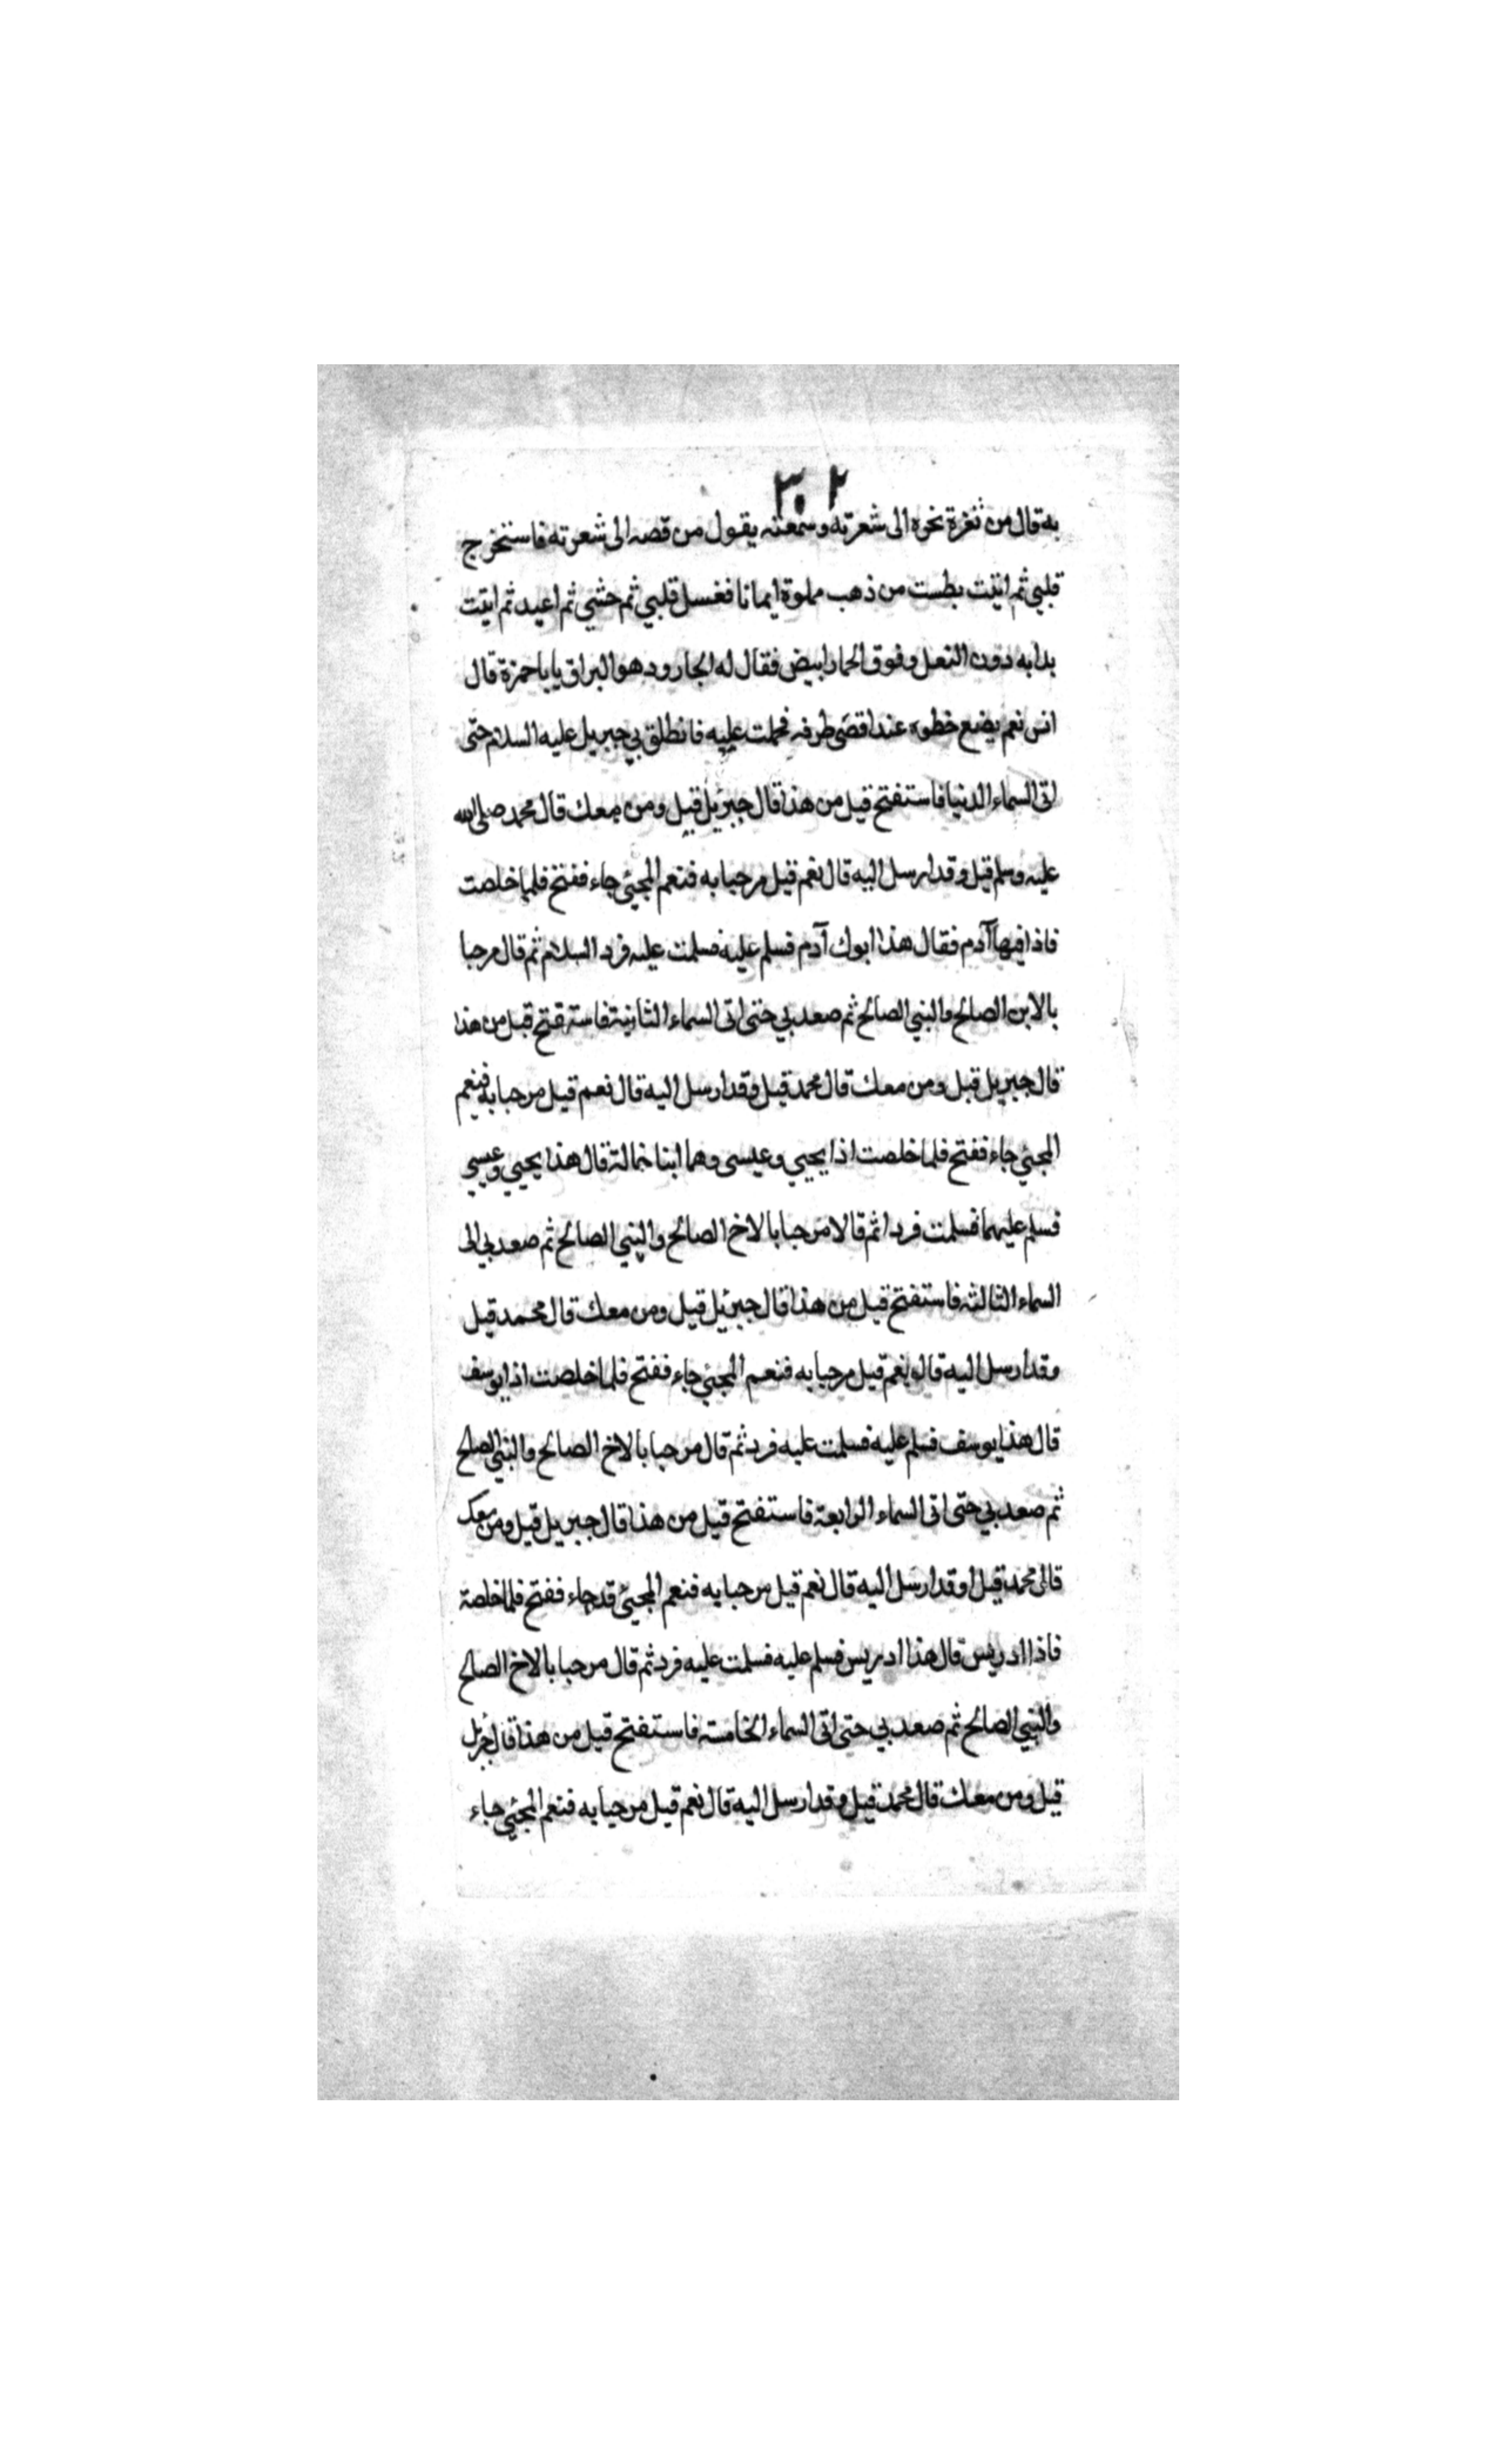 ٣٠٢
به قال من ثغرة نحره الى شعرته وسمعته يقول من قصه الى شعرته فاستخرج
قلبي ثم اتيت بطست من ذهب مملوة ايمانا فغسل قلبي ثم حشي ثم اعيد ثم اتيت
بدابه دون البغل وفوق الحمار ابيض فقال له الجارود هو البراق يابا حمزة قال
انس نعم يضع خطوه عند اقصى طرفه فحملت عليه فانطلق بي جبريل عليه السلام حتى
اتى السماء الدنيا فاستفتح قيل من هذا قال جبرئيل قيل ومن معك قال محمد صلى الله
عليه وسلم قيل وقد ارسل اليه قال نعم قيل مرحبا به فنعم المجيئ جاء ففتح فلما خلصت
فاذا فيها آدم فقال هذا ابوك آدم فسلم عليه فسلمت عليه فرد السلام ثم قال مرحبا
بالابن الصالح والنبي الصالح ثم صعد بي حتى اتى السماء الثانية فاستفتح قيل من هذا
قال جبريل قيل ومن معك قال محمد قيل وقد ارسل اليه قال نعم قيل مرحبا به فنعم
المجئي جاء ففتح فلما خلصت اذا يحيي وعيسى وهما ابنا خالة قال هذا يحيي وعيسي
فسلم عليهما فسلمت فردا ثم قالا مرحبا بالاخ الصالح والنبي الصالح ثم صعد بي الى
السماء الثالثه فاستفتح قيل من هذا قال جبرئيل قيل ومن معك قال محمد قيل
وقد ارسل اليه قال نعم قيل مرحبا به فنعم المجئي جاء ففتح فلما خلصت اذا يوسف
قال هذا يوسف فسلم عليه فسلمت عليه فرد ثم قال مرحبا بالاخ الصالح والنبي الصالح
ثم صعد بي حتى اتى السماء الرابعة فاستفتح قيل من هذا قال جبريل قيل ومن معك
قال محمد قيل اوقد ارسل اليه قال نعم قيل مرحبا به فنعم المجيئ قد جاء ففتح فلما خلصة
فاذا ادريس قال هذا ادريس فسلم عليه فسلمت عليه فرد ثم قال مرحبا بالاخ الصالح
والنبي الصالح ثم صعد بي حتى اتى السماء الخامسته فاستفتح قيل من هذا قال جبريل
قيل ومن معك قال محمد قيل وقد ارسل اليه قال نعم قيل مرحبا به فنعم المجئي جاء